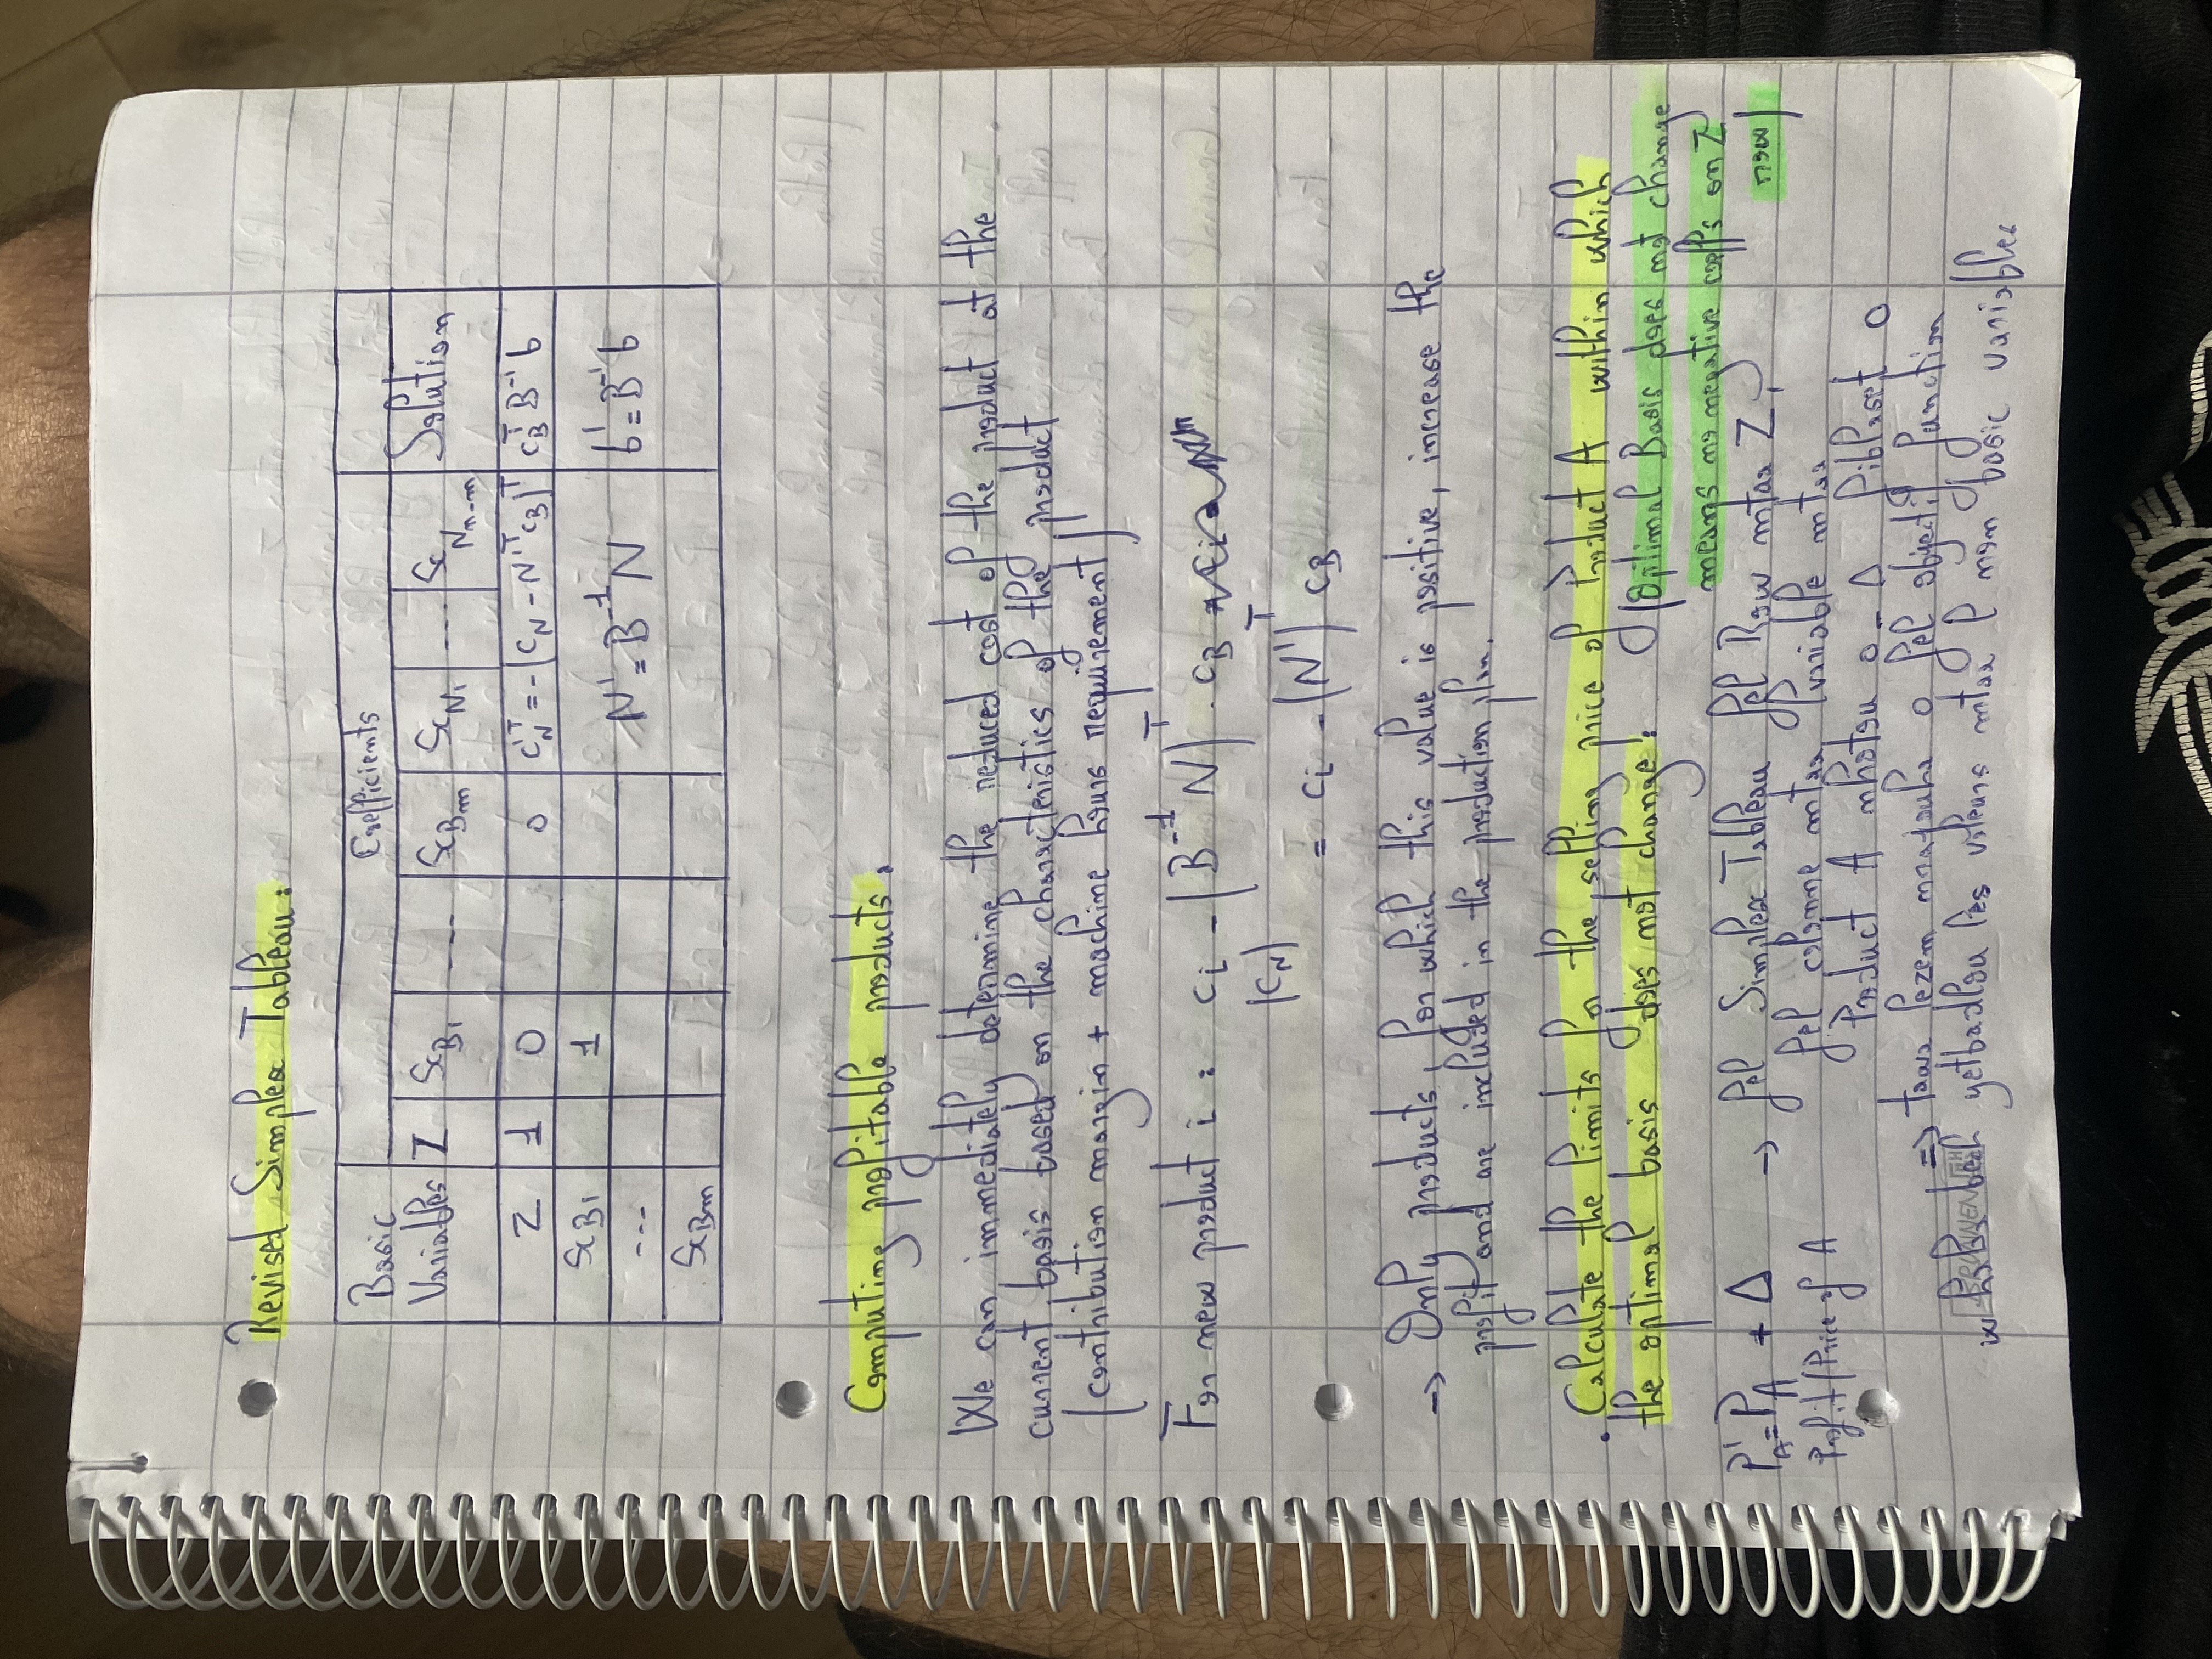 Revised Simplex Tableau:
Basic Variables | Coefficients | Solution
Z | x_B1 | .... | x_Bm | x_N1 | ... | x_Nn-m
Z | 1 | 0 | 0 | c'_N^T = -(c_N - N'^T c_B)^T | c_B^T B^-1 b
x_B1 | 1 | N' = B^-1 N | b' = B^-1 b
---
x_Bm
Computing profitable products.
We can immediately determine the reduced cost of the product at the
current basis based on the characteristics of the product
(contribution margin + machine hours requirement)
For new product i : c_i - (B^-1 N)^T . c_B
(c_N)
= c_i - (N')^T c_B
→ Only products, for which this value is positive, increase the
profit and are included in the production plan.
. Calculate the limits for the selling price of Product A within which
the optimal basis does not change: (Optimal Basis does not change
means no negative coeffs on Z
row)
P'_A = P_A + Δ → fel Simplex Tableau fel Row mtaa Z,
Profit/Price of A
fel colonne mtaa lvariable mtaa
Product A nhotou 0 - Δ fiblaset 0
=> tawa lezem 0 fel objectif function
w haka bech yetbadlou les valeurs mtaa l non basic variables
BRUNNEN